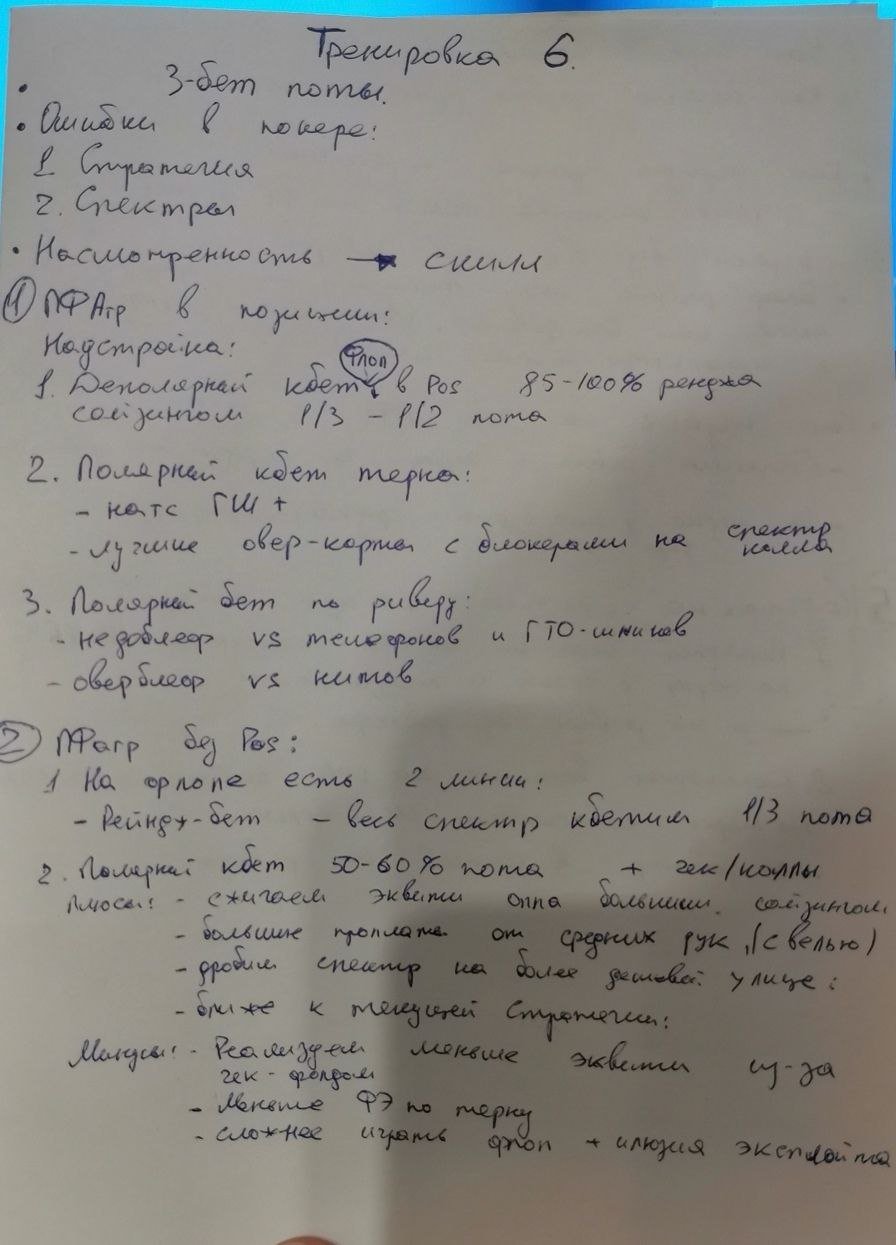 Тренировка 6.
• 3-бет поты.
• Ошибки в покере:
1 Стратегия
2. Спектры
• Насмотренность → скилл
① ПФАгр в позиции:
Надстройка:
Флоп
1. Деполярный кбет в Pos 85-100% ренджа
сайзингом 1/3 - 1/2 пота
2. Полярный кбет терна:
- натс ГШ +
- лучшие овер-карты с блокерами на спектр колла
3. Полярный бет по риверу:
- недоблеф vs телефонов и ГТО-шников
- оверблеф vs нитов
② ПФагр без Pos:
1 На флопе есть 2 линии:
- Рейндж-бет - весь спектр кбетим 1/3 пота
2. Полярный кбет 50-60% пота + чек/коллы
Плюсы: - сжигаем эквити оппа большим сайзингом
- большие проплаты от средних рук, (с велью)
- дробим спектр на более дешевой улице:
- ближе к текущей стратегии:
Минусы: - Реализуем меньше эквити из-за
чек-фолдом
- Меньше ФЭ по терну
- сложнее играть флоп + илюзия эксплойта